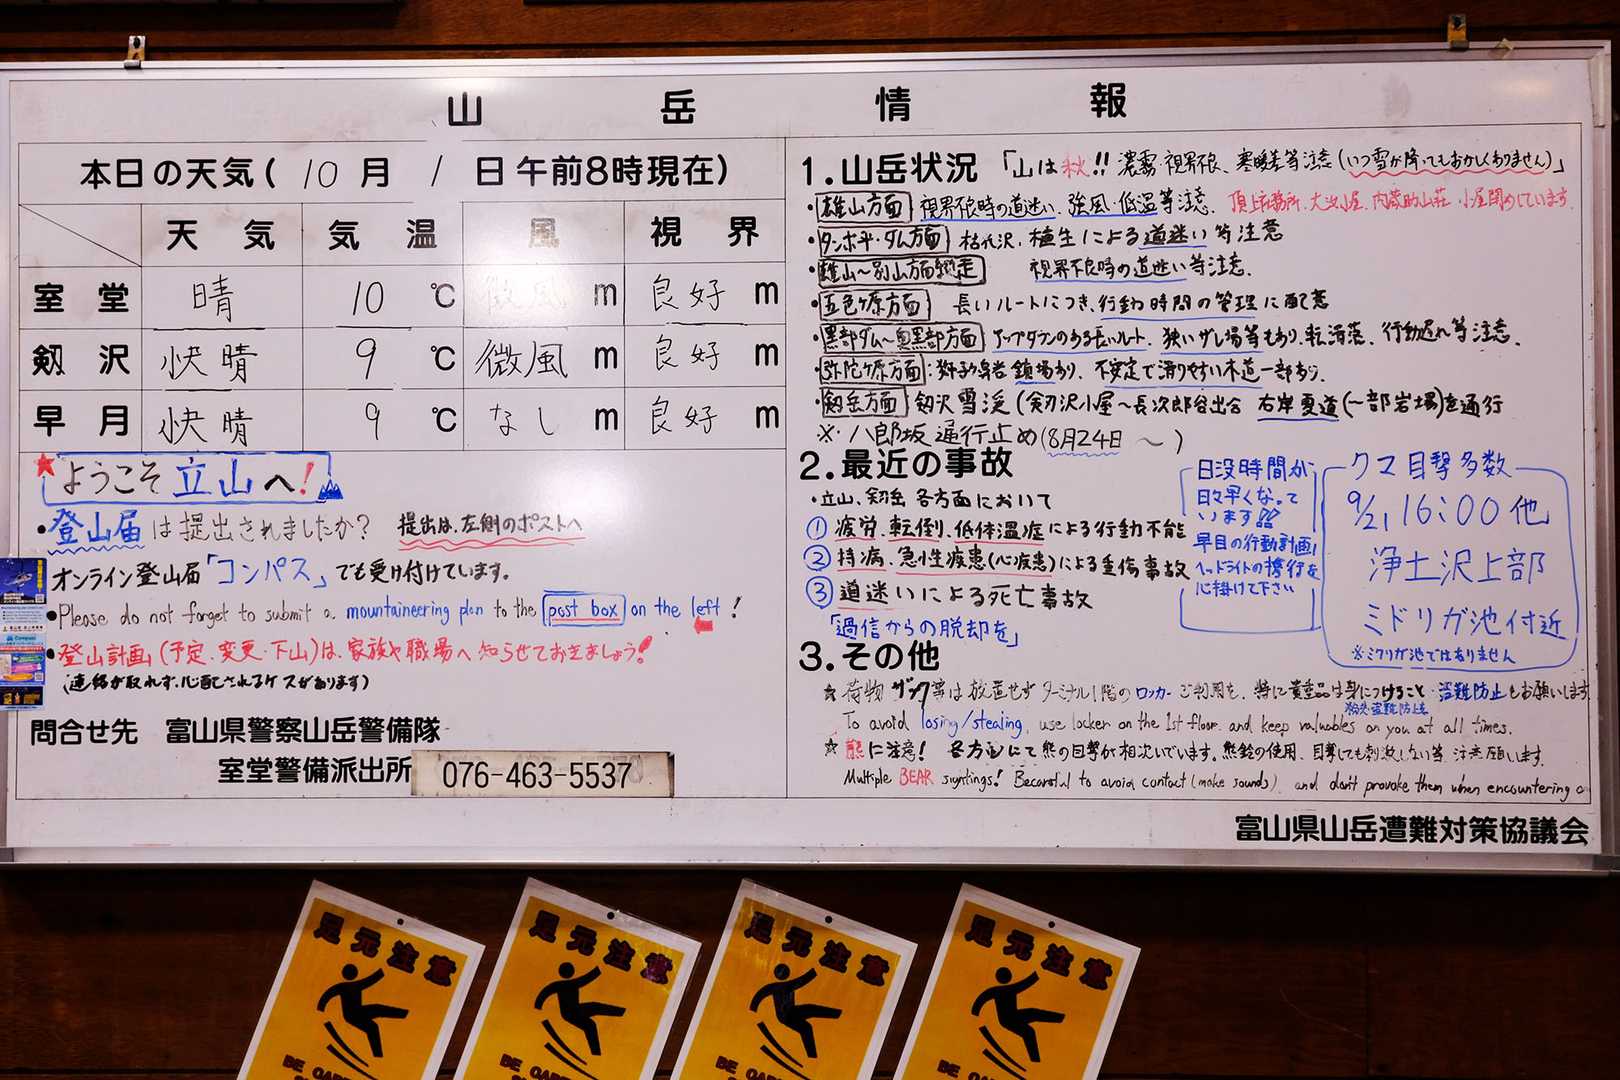 山岳情報
本日の天気( 10月 1日午前8時現在)
天気 気温 風 視界
室堂 晴 10℃ 微風 m 良好 m
剱沢 快晴 9℃ 微風 m 良好 m
早月 快晴 9℃ なし m 良好 m
★ようこそ立山へ!
・登山届は提出されましたか? 提出は、左側のポストへ
オンライン登山届「コンパス」でも受け付けています。
●Please do not forget to submit a mountaineering plan to the post box on the left!
●登山計画(予定、変更・下山)は、家族や職場へ知らせておきましょう!
(連絡が取れず、心配されるケースがあります)
問合せ先 富山県警察山岳警備隊
室堂警備派出所 076-463-5537
1.山岳状況 「山は秋!! 濃霧 視界不良、寒暖差等注意(いつ雪が降ってもおかしくありません)」
・雄山方面 視界不良時の道迷い、強風・低温等注意、頂上社務所、大汝小屋、内蔵助山荘 小屋閉めしています。
・タンボ平・ダム方面 枯れ沢、植生による道迷い等注意
・雄山〜別山方面縦走 視界不良時の道迷い等注意、
・五色ヶ原方面 長いルートにつき、行動時間の管理に配意
・黒部ダム〜奥黒部方面 アップダウンのある長いルート、狭いザレ場等もあり、転滑落、行動遅れ等注意、
・弥陀ヶ原方面:獅子鼻岩鎖場あり、不安定で滑りやすい木道一部あり、
・剱岳方面 剱沢雪渓(剱沢小屋〜長次郎谷出合 右岸夏道(一部岩場)を通行
※八郎坂通行止め(8月24日 〜 )
2.最近の事故
・立山、剱岳各方面において
①疲労、転倒、低体温症による行動不能
②持病、急性疾患(心疾患)による重傷事故
③道迷いによる死亡事故
「過信からの脱却を」
日没時間が
日々早くなって
います!!
早目の行動計画、
ヘッドライトの携行を
心掛けて下さい
クマ目撃多数
9/21, 16:00他
浄土沢上部
ミドリガ池付近
※ミクリガ池ではありません
3.その他
☆荷物 ザック等は放置せずターミナル1階のロッカーご利用を、特に貴重品は身につけること・盗難防止をお願いします
紛失・盗難防止を
To avoid losing/stealing, use locker on the 1st floor. and keep valuables on you at all times.
☆熊に注意! 各方面にて熊の目撃が相次いでいます。熊鈴の使用、目撃しても刺激しない等、注意願います。
Multiple BEAR sightings! Be careful to avoid contact (make sounds), and don't provoke them when encountering
富山県山岳遭難対策協議会
足元注意
足元注意
足元注意
足元注意
BE
BE
BE
BE